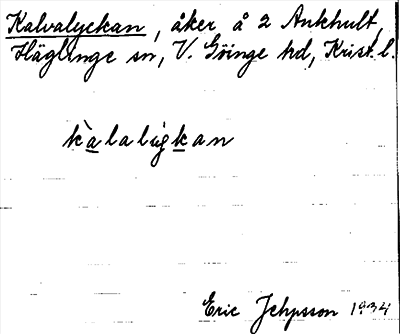 Kalvalyckan, åker å 2 Ankhult,
Häglinge sn, V. Göinge hd, Krist. l.
Eric Jehpsson 1934